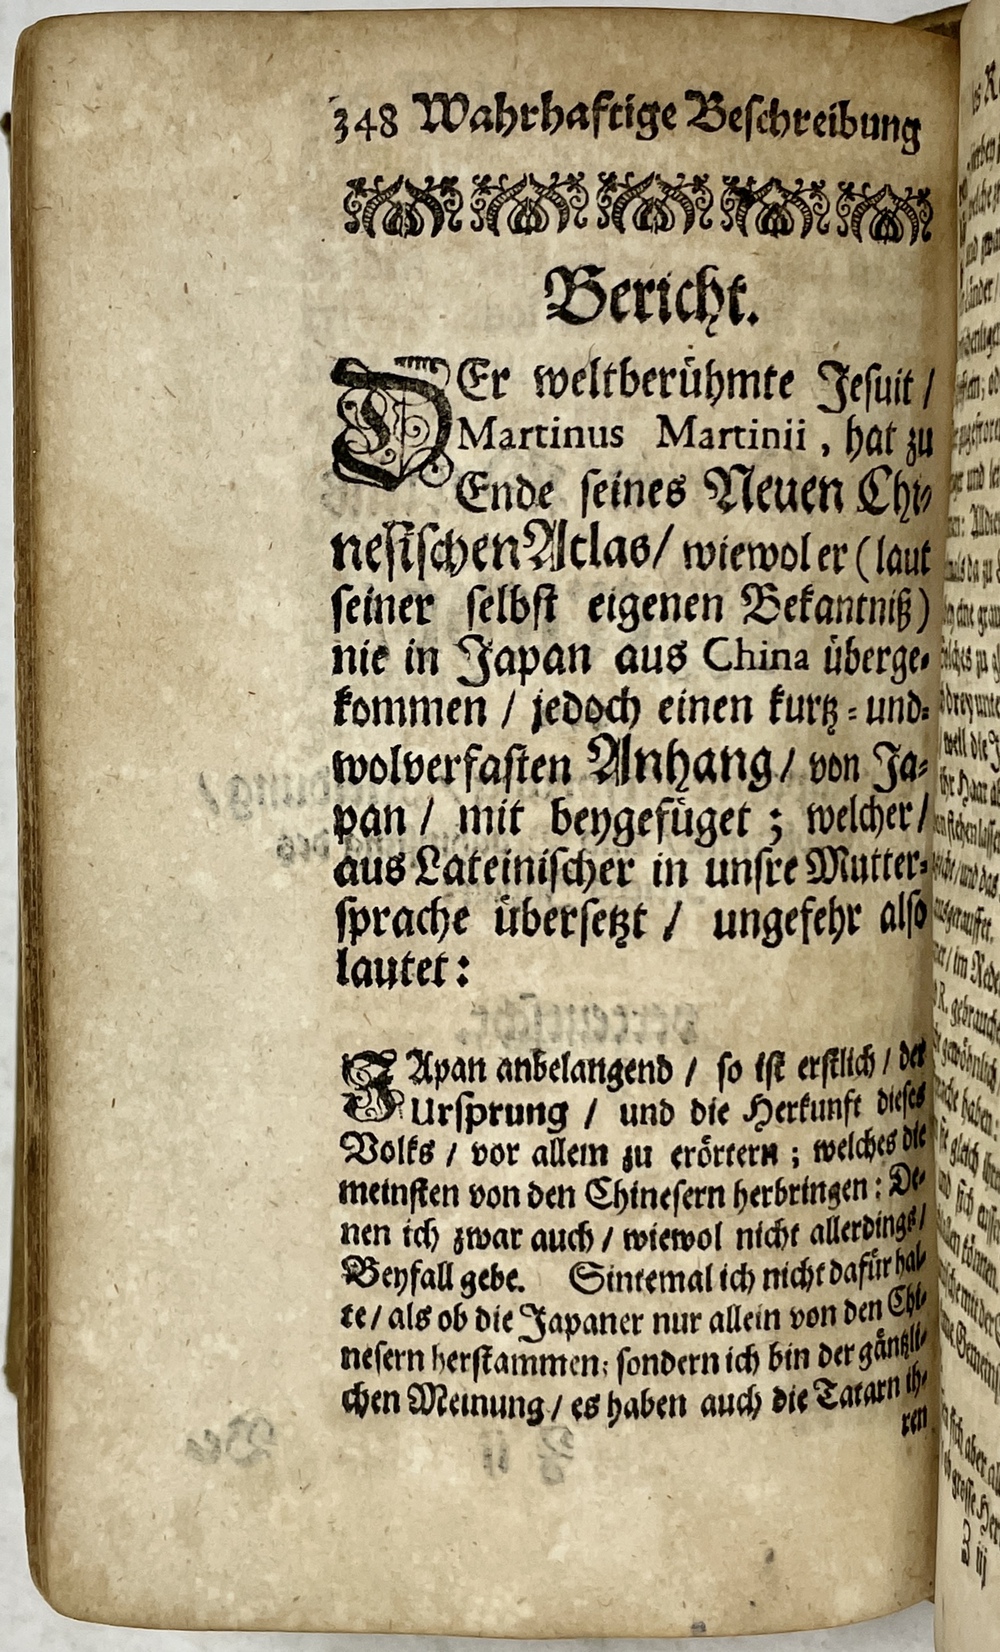 348 Wahrhaftige Beschreibung
Bericht.
DEr weltberühmte Jesuit /
Martinus Martinii, hat zu
Ende seines Neuen Chi-
nesischen Atlas / wiewol er (laut
seiner selbst eigenen Bekantniß)
nie in Japan aus China überge-
kommen / jedoch einen kurtz- und-
wolverfasten Anhang / von Ja-
pan / mit beygefüget; welcher /
aus Lateinischer in unsre Mutter-
sprache übersetzt / ungefehr also
lautet:
JApan anbelangend / so ist erstlich / der
Ursprung / und die Herkunft dieses
Volks / vor allem zu erörtern; welches die
meinsten von den Chinesern herbringen: De-
nen ich zwar auch / wiewol nicht allerdings /
Beyfall gebe. Sintemal ich nicht dafür hal-
te / als ob die Japaner nur allein von den Chi-
nesern herstammen; sondern ich bin der gäntzli-
chen Meinung / es haben auch die Tatarn ih-
ren
Z iij